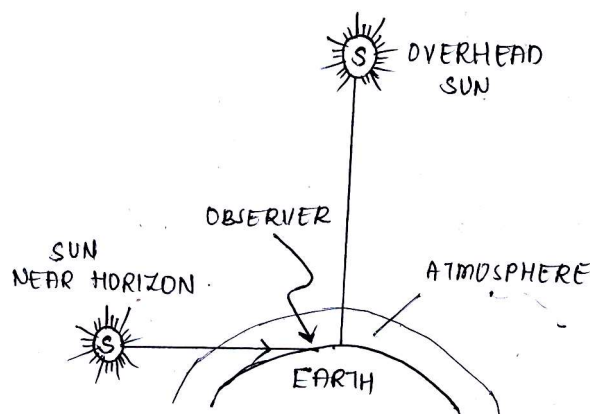 S
OVERHEAD
SUN
OBSERVER
SUN
NEAR HORIZON
ATMOSPHERE
S
EARTH